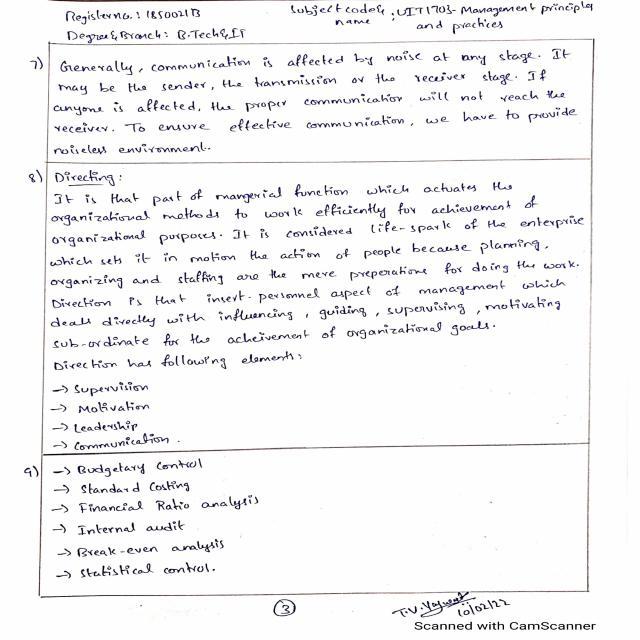 Register no. : 1850021B
Subject code & name : UIT1703- Management principles and practices
Degree & Branch : B.Tech & IT
7) Generally, communication is affected by noise at any stage. It
may be the sender, the transmission or the receiver stage. If
anyone is affected, the proper communication will not reach the
receiver. To ensure effective communication, we have to provide
noiseless environment.
8) Directing :
It is that part of mangerial function which actuates the
organizational methods to work efficiently for achievement of
organizational purposes. It is considered life-spark of the enterprise
which sets it in motion the action of people because planning,
organizing and staffing are the mere preperations for doing the work.
Direction is that insert-personnel aspect of management which
deals directly with influencing, guiding, supervising, motivating
sub-ordinate for the acheivement of organizational goals.
Direction has following elements :
→ Supervision
→ Motivation
→ Leadership
→ Communication .
9) → Budgetary control
→ Standard Costing
→ Financial Ratio analysis
→ Internal audit
→ Break-even analysis
→ Statistical control.
3
T.V.
10/02/22
Scanned with CamScanner